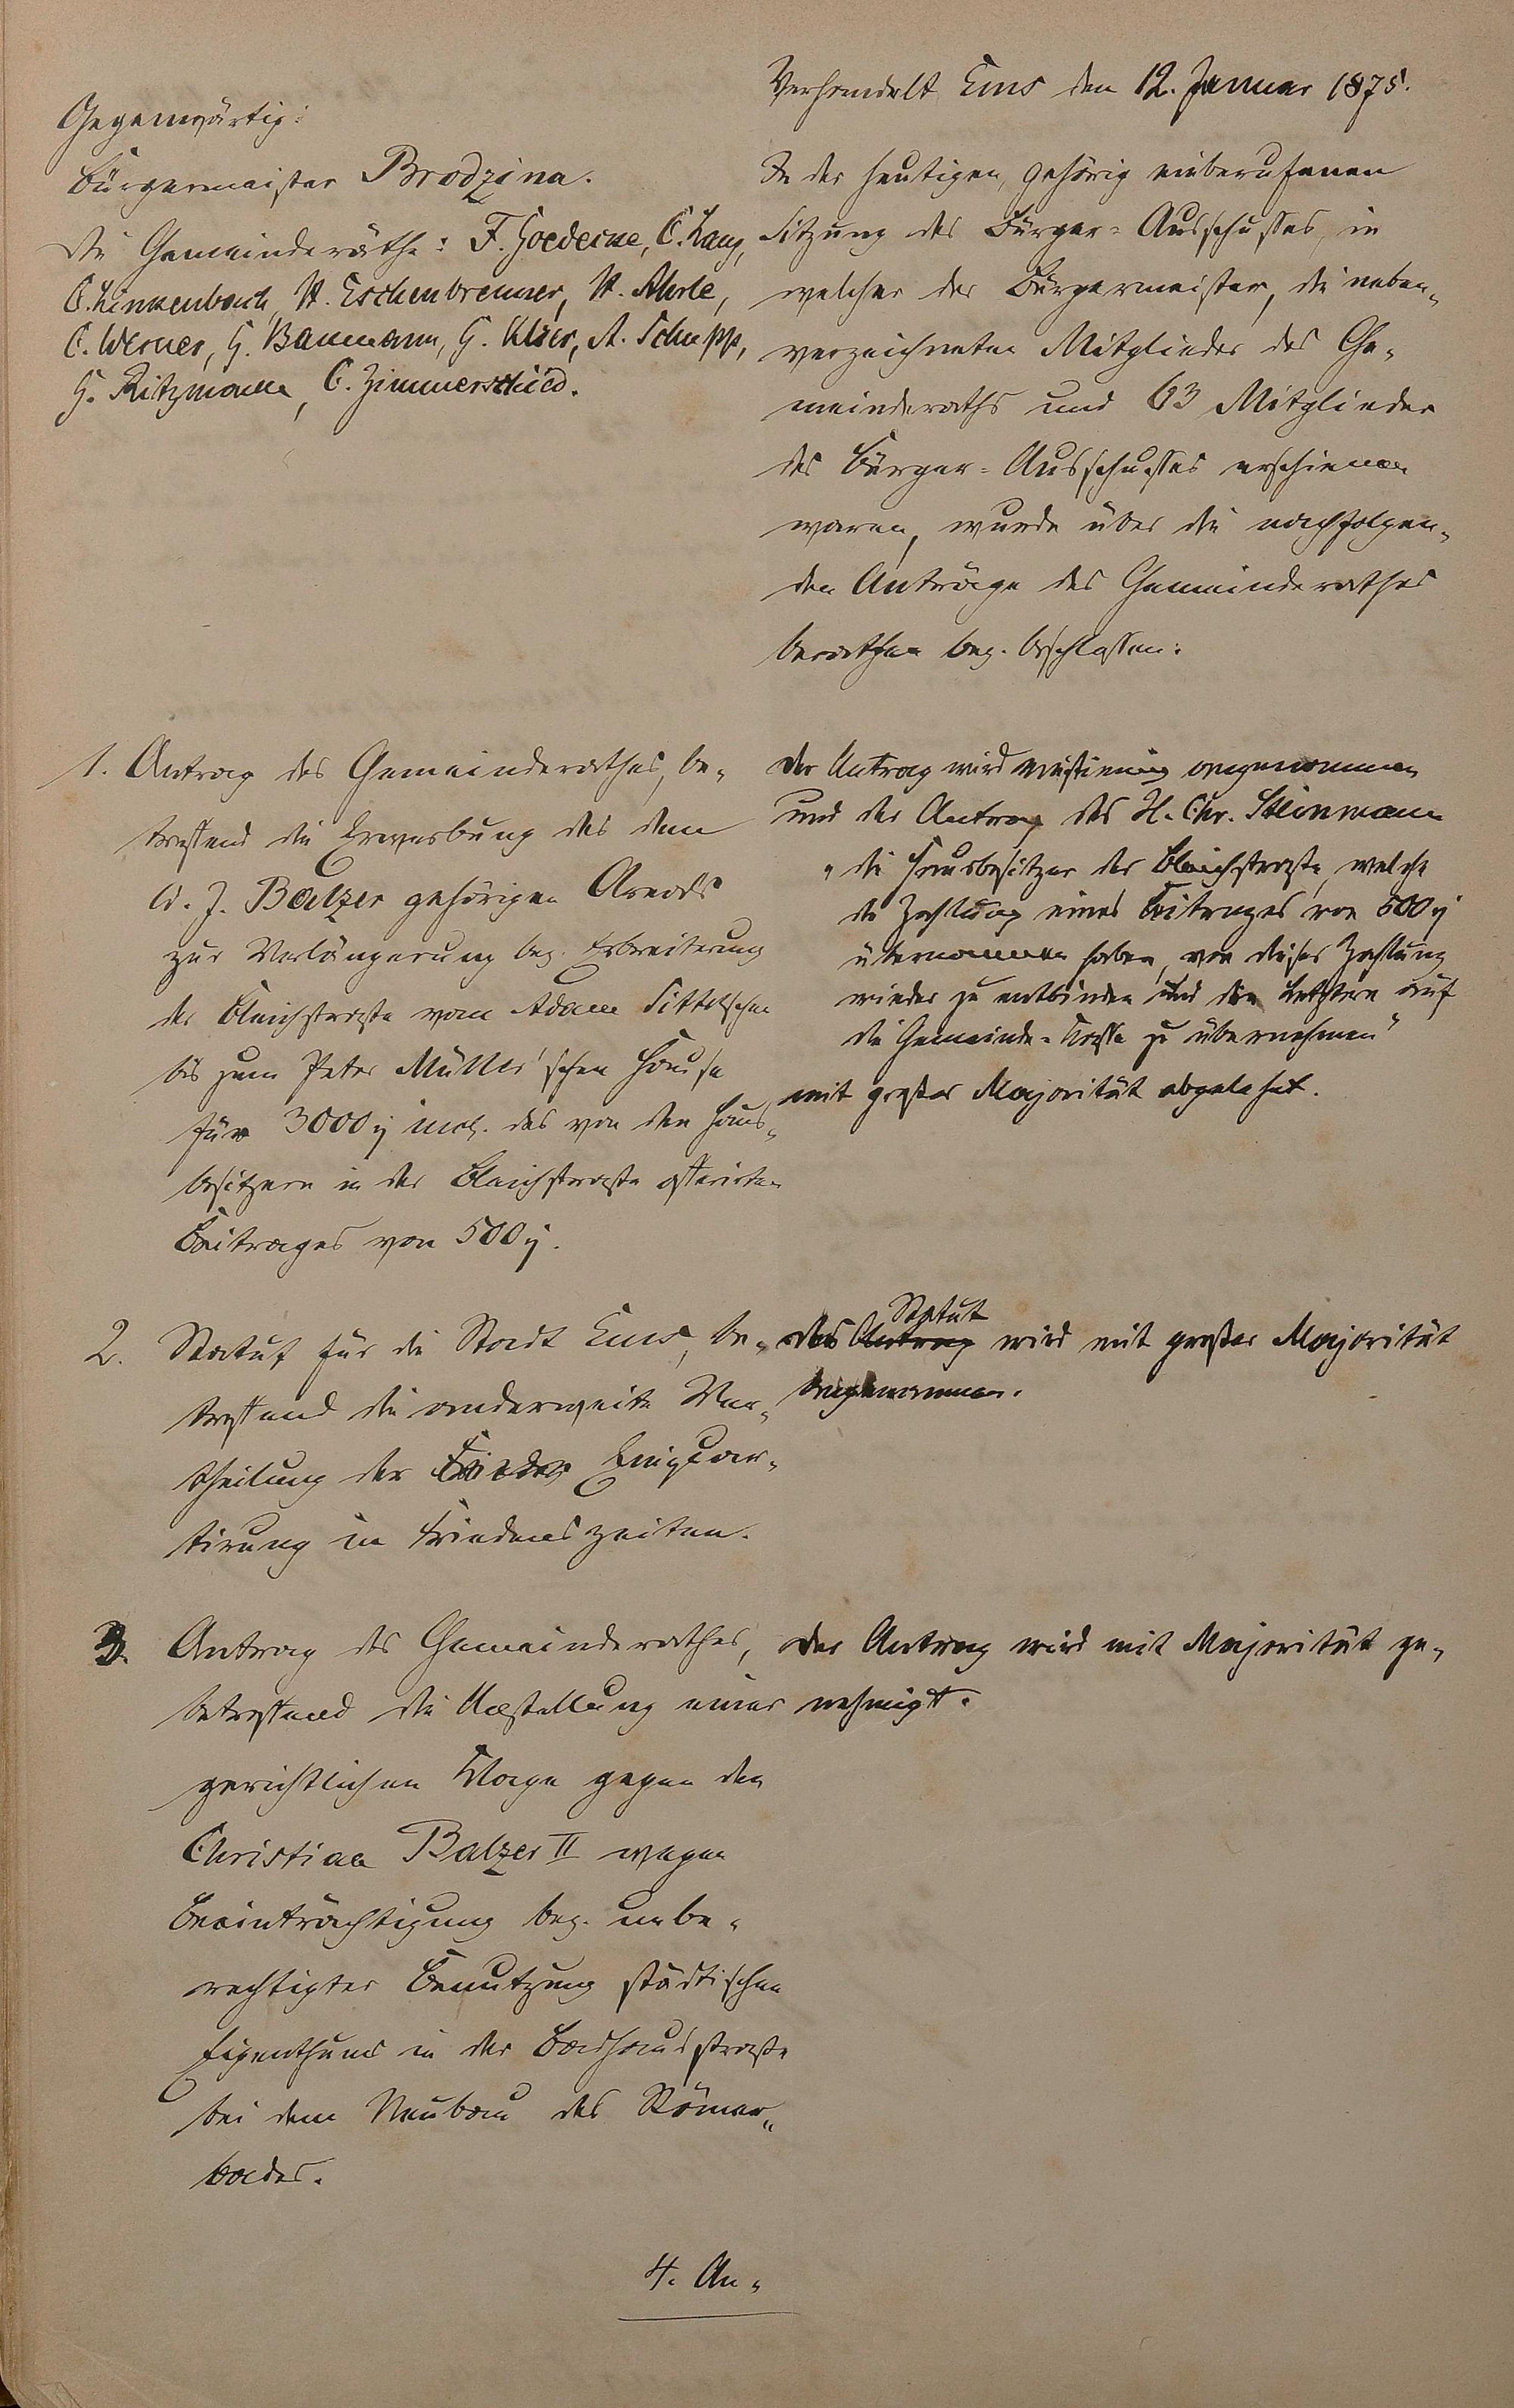 Verhandelt Ems den 12. Januar 1875.
Gegenwärtig:
Bürgermeister Brodzina.
Die Gemeinderäthe: F. Goedecke, C. Lang,
C. Linkenbach, H. Eschenbrenner, H. Ahrle,
C. Werner, G. Baumann, G. A. Schupp,
G. Ritzmann, C. Zimmerschied.
In der heutigen, gehörig einberufenen
Sitzung des Bürger=Ausschusses, in
welcher der Bürgermeister, die neben-
verzeichneten Mitglieder des Ge-
meinderaths und 63 Mitglieder
des Bürger=Ausschusses erschienen
waren, wurde über die nachfolgen-
den Anträge des Gemeinderathes
berathen bez. beschlossen:
1. Antrag des Gemeinderathes, be-
treffend die Erwerbung des dem
W. J. Balzer gehörigen Areals
zur Verlängerung bez. Erbreiterung
der Bleichstraße vom Adam
bis zum Peter Müller'schen Hause
für 3000 incl. des von den Haus-
besitzern in der Bleichstraße offerirten
Beitrages von 500
Der Antrag wird einstimmig angenommen
und der Antrag des H. Chr. Steinmann
"die Hausbesitzer der Bleichstraße, welche
die Zahlung eines Beitrages von 500
übernommen haben, von dieser Zahlung
wieder zu entbinden und die Letztere auf
die Gemeinde=Kasse zu übernehmen"
mit großer Majorität abgelehnt.
2. Statut für die Stadt Ems, be-
treffend die anderweite Ver-
theilung der Einquar-
tirung in Friedenszeiten.
Das Antrag Statut wird mit großer Majorität
angenommen.
3. Antrag des Gemeinderathes,
betreffend die Anstellung einer
gerichtlichen Klage gegen den
Christian Balzer II wegen
Beeinträchtigung bez. unbe-
rechtigter Benutzung städtischen
Eigenthums in der Badhausstraße
bei dem Neubau des Römer-
bades.
Der Antrag wird mit Majorität ge-
nehmigt.
4. An-